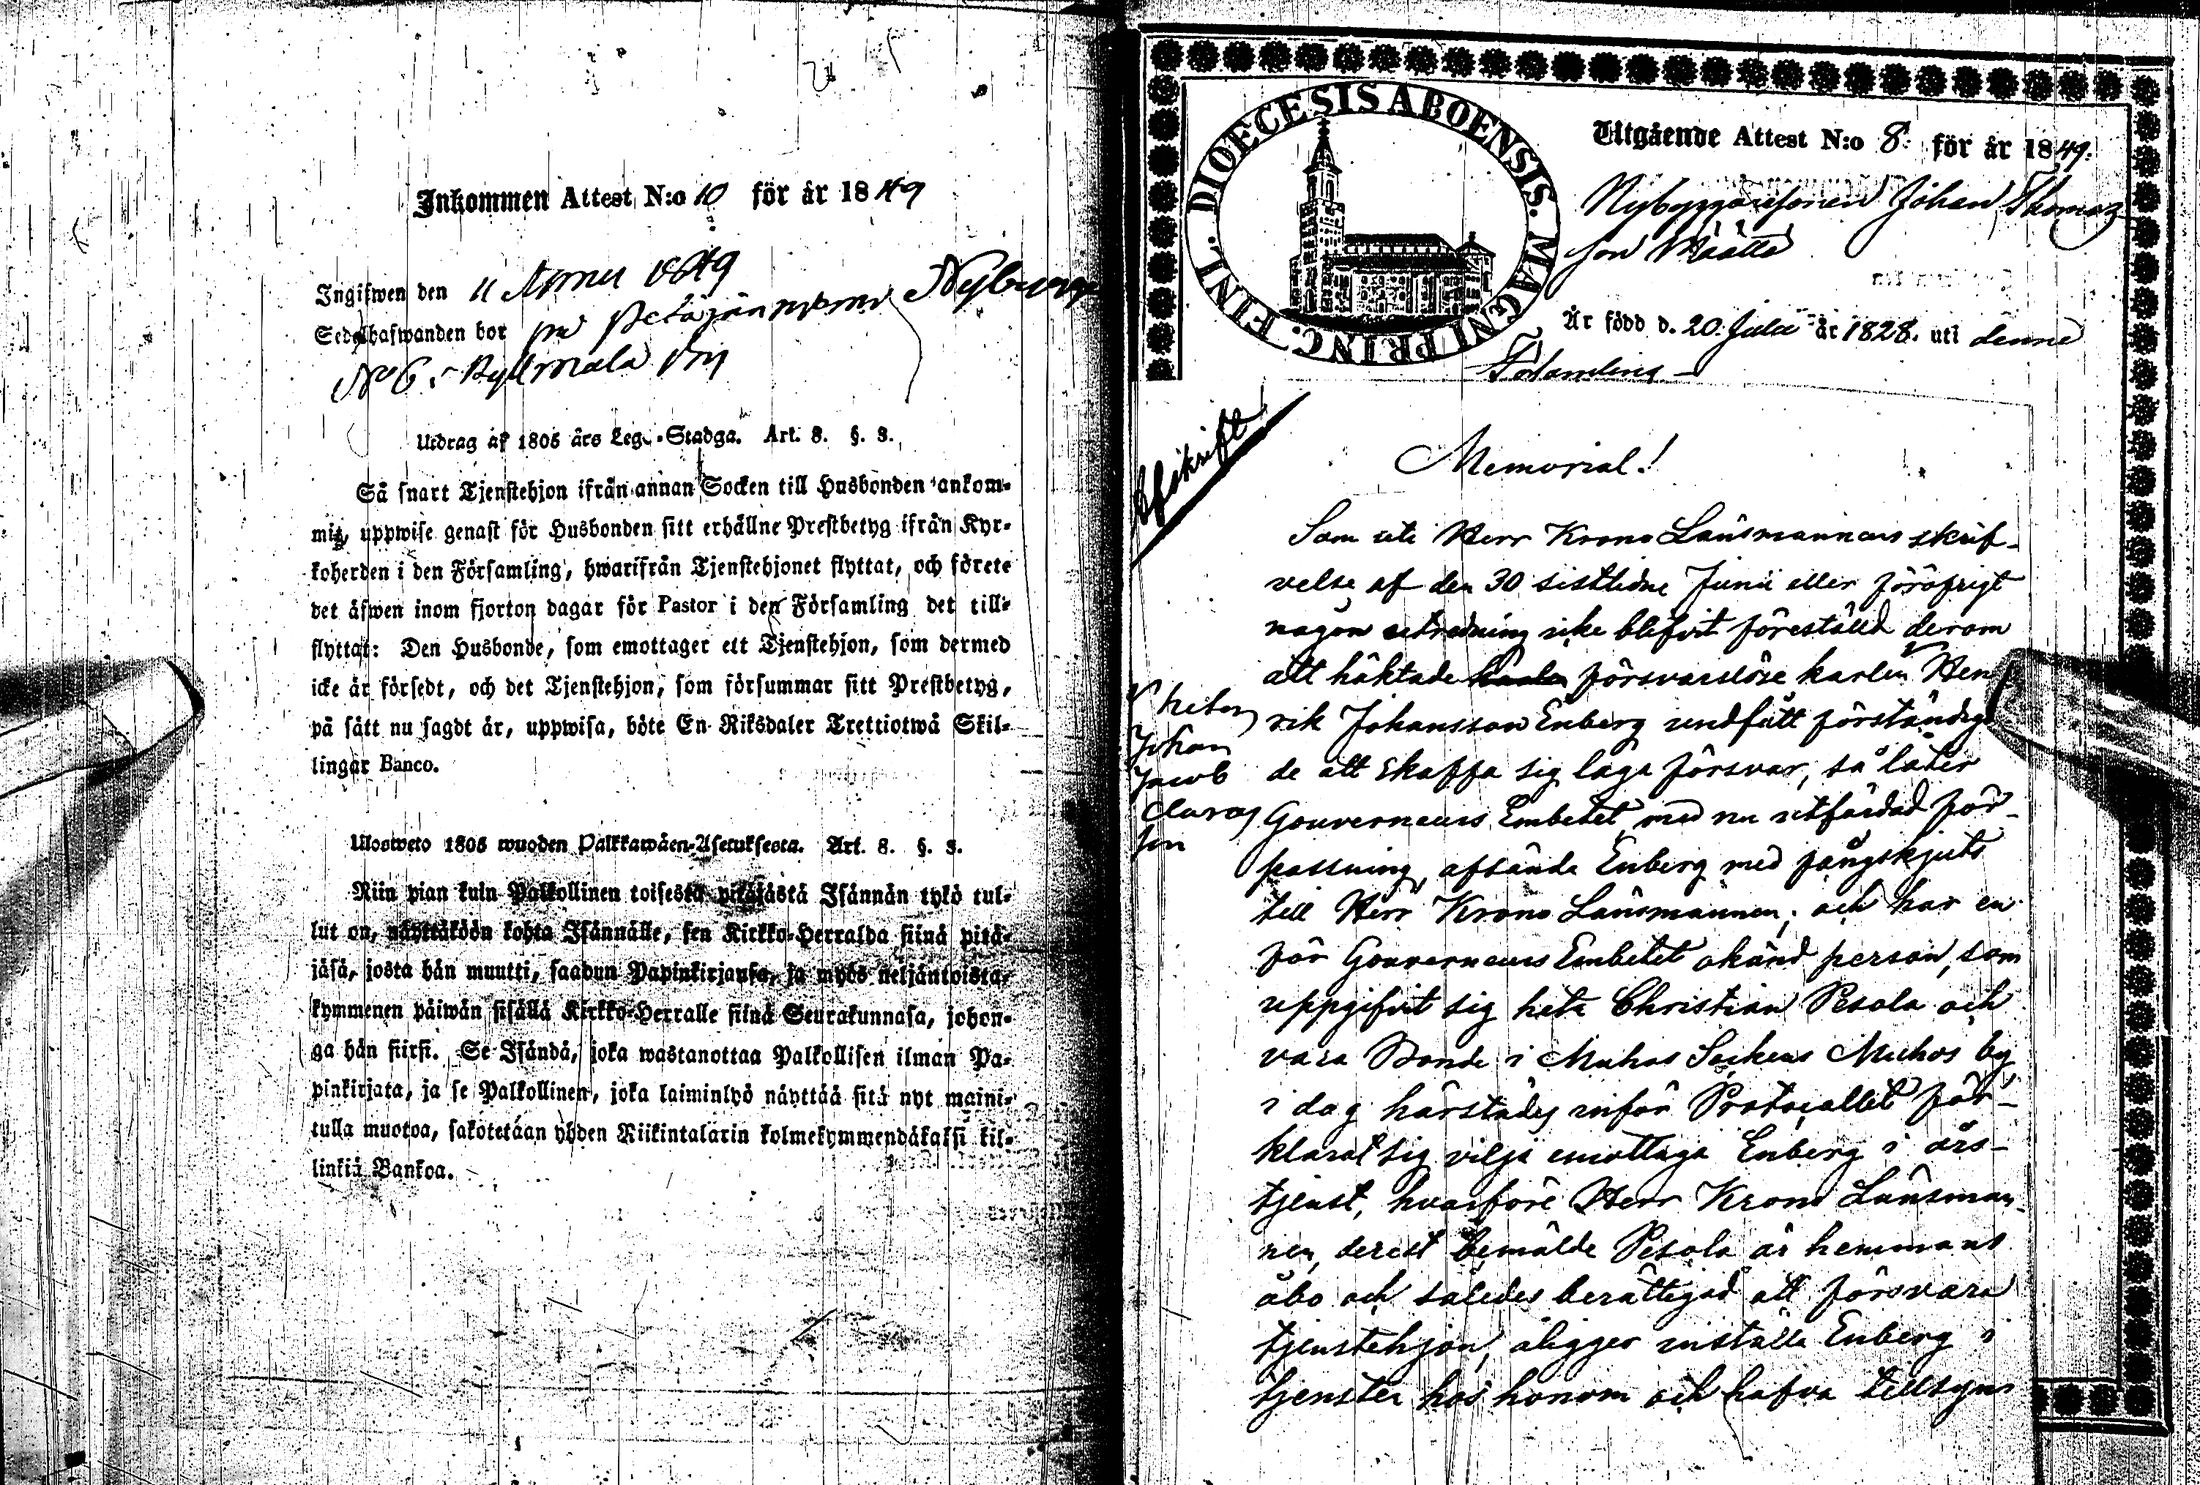 Inkommen Attest N:o 10 för år 1849
Ingifwen den 11 1849
Sedelhafwanden bor på Nybygge
N:o 6 i by
Utdrag af 1805 års Leg-Stadga. Art. 8. §. 3.
Så snart Tjenstehjon ifrån annan Socken till Husbonden ankom-
mit, uppwise genast för Husbonden sitt erhållne Prestbetyg ifrån Kyr-
koherden i den Församling, hwarifrån Tjenstehjonet flyttat, och förete
det äfwen inom fjorton dagar för Pastor i den Församling det till-
flyttat: Den Husbonde, som emottager ett Tjenstehjon, som dermed
icke är försedt, och det Tjenstehjon, som försummar sitt Prestbetyg,
på sätt nu sagdt är, uppwisa, böte En Riksdaler Trettiotwå Skil-
lingar Banco.
Ulosweto 1805 wuoden Palkkawäen-Asetuksesta. Art. 8. §. 3.
Niin pian kuin Palkollinen toisesta pitäjästä Isännän tykö tul-
lut on, näyttäköön kohta Isännälle, sen Kirkko-Herralda siinä pitä-
jäsä, josta hän muutti, saadun Papinkirjansa, ja myös neljäntoista-
kymmenen päiwän sisällä Kirkko-Herralle siinä Seurakunnasa, johon-
ga hän siirsi. Se Isändä, joka wastanottaa Palkollisen ilman Pa-
pinkirjata, ja se Palkollinen, joka laiminlyö näyttää sitä nyt maini-
tulla muotoa, sakotetaan yhden Riikintalarin kolmekymmendäkaksi kil-
linkiä Bankoa.
DIOECESIS ABOENSIS. MAGNI PRINC. FINL.
Utgående Attest N:o 8. för år 1849.
Nybyggaresonen Johan Thomas
son Määttä
Är född d. 20 Julii år 1828. uti denne
Församling
Afskrift
Memorial!
Som uti Herr Krono Länsmannens skrif-
velse af den 30 sistledne Junii eller föröfrigt
någon utredning icke blifvit föreställd derom
att häktade försvarslöse karlen Hen
rik Johansson Enberg undfått förständigan-
de att skaffa sig laga försvar, så låter
Gouverneurs Embetet med nu utfärdad för-
passning, afsända Enberg med fångskjuts
till Herr Krono Länsmannen; och har en
för Gouverneurs Embetet okänd person, som
uppgifvit sig heta Christian Pesola och
vara Bonde i Muhos Sockens Muhos by
i dag härstädes inför Protocollet för-
klarat sig vilja emottaga Enberg i års-
tjenst, hvarföre Herr Krono Länsman-
nen, derest bemälde Pesola är hemmans
åbo och således berättigad att försvara
tjenstehjon, åligger inställa Enberg i
tjensten hos honom och hafva tillsyn
heter
Johan
Jacob
Claras
son